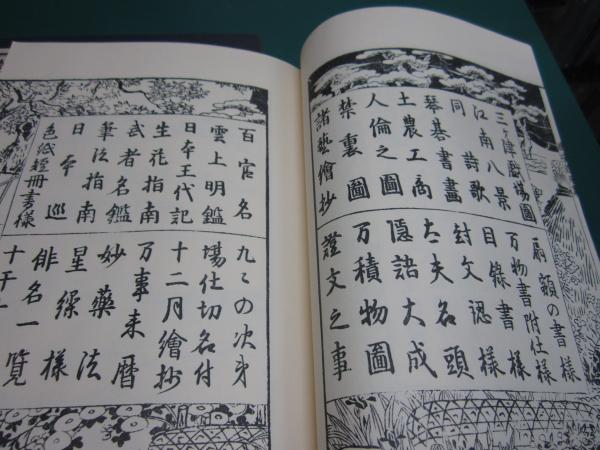 三ヶ津戯場圖
江南八景
同詩歌
琴碁書畫
士農工商
人倫之圖
禁裏圖
諸藝繪抄
扇額の書様
万物書附仕様
目錄書様
封文認様
太夫名頭
隠語大成
万積物圖
證文之事
百官名
雲上明鑑
日本王代記
生花指南
武者名鑑
筆法指南
日本巡
色紙短冊書様
九々の次第
場仕切名付
十二月繪抄
万事来暦
妙藥法
星繰様
俳名一覧